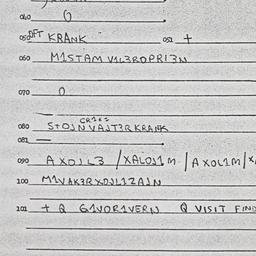 040 0
050 DFT KRANK 051 +
060 M1STAM V1L3ROPRI3N
070 0
CR1X1
080 STOJN VAJT3R KRANK
081 —
090 AXOJL3 /XALOJ1M / AXOL1M/X
100 M1VAK3RXOJL1ZAJN
101 + Q G1VOR1VERN Q VISIT FIND